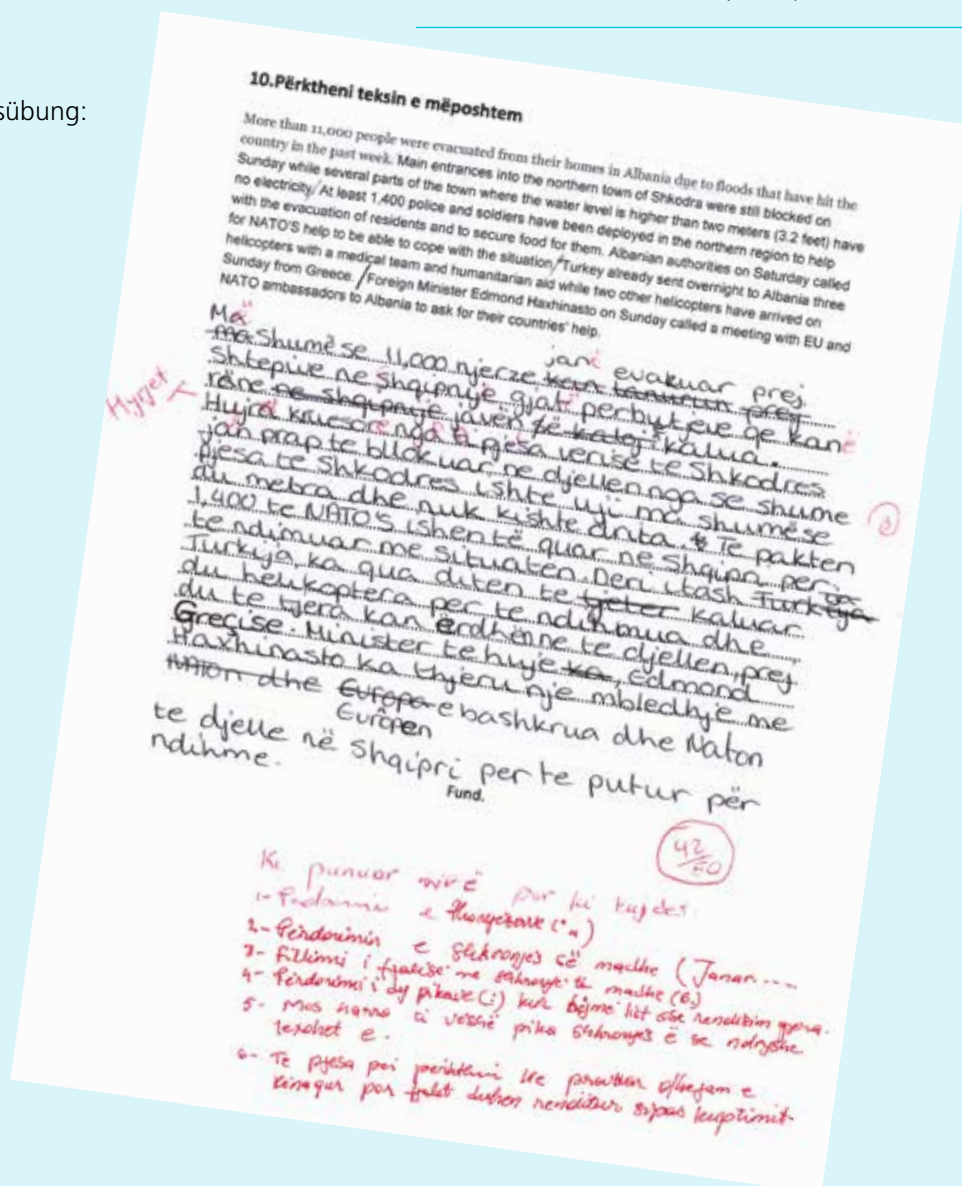 sübung:
10.Përktheni teksin e mëposhtem
More than 11,000 people were evacuated from their homes in Albania due to floods that have hit the
country in the past week. Main entrances into the northern town of Shkodra were still blocked on
Sunday while several parts of the town where the water level is higher than two meters (3.2 feet) have
no electricity/At least 1,400 police and soldiers have been deployed in the northern region to help
with the evacuation of residents and to secure food for them. Albanian authorities on Saturday called
for NATO'S help to be able to cope with the situation/Turkey already sent overnight to Albania three
helicopters with a medical team and humanitarian aid while two other helicopters have arrived on
Sunday from Greece. /Foreign Minister Edmond Haxhinasto on Sunday called a meeting with EU and
NATO ambassadors to Albania to ask for their countries' help.
Më
ma Shumë se 11,000 njerze, janë evakuar prej
Shtepive ne Shqipnyje gjatë perbytjeve qe kanë
Hyrjet
rëne ne shqipnyje javën kalua.
Hujrat kruesore nga pjesa verise te Shkodres
jan prap te bllokuar ne djellen nga se shume
pjesa te Shkodres ishte uji ma shumë se
du metra dhe nuk kishte drita. Te pakten
1,400 te NATO'S ishen të quar ne Shqipri per
te ndimuar me situaten. Deri itash
Turkija, ka qua diten te tjeter kaluar
du helikoptera per te ndihmua dhe
du te tjera kan ërdhën ne te djellen, prej
Grecise. Minister te huje ka, Edmond
Haxhinasto ka thjeru nje mbledhje me
NATOn dhe Europa e bashkrua dhe Naton
Européen
te djelle në Shqipri per te putur për
ndihme.
Fund.
42
Ki punuar mirë por ki kujdes.
1- e thonjëzave („)
2- Përdorimin e Shkronjës së madhe (Janar....
3- Fillimi i fjalisë me shkronjë të madhe (6.)
4- Përdorimi i dy pikave (:) kur bëjmë list ose renditim gjera.
5- Mos harro ti vësh pika shkronjës ë se ndryshe
lexohet e.
6- Te pjesa përkthimi e
kënaqur por fjalët duhen renditur sipas kuptimit.